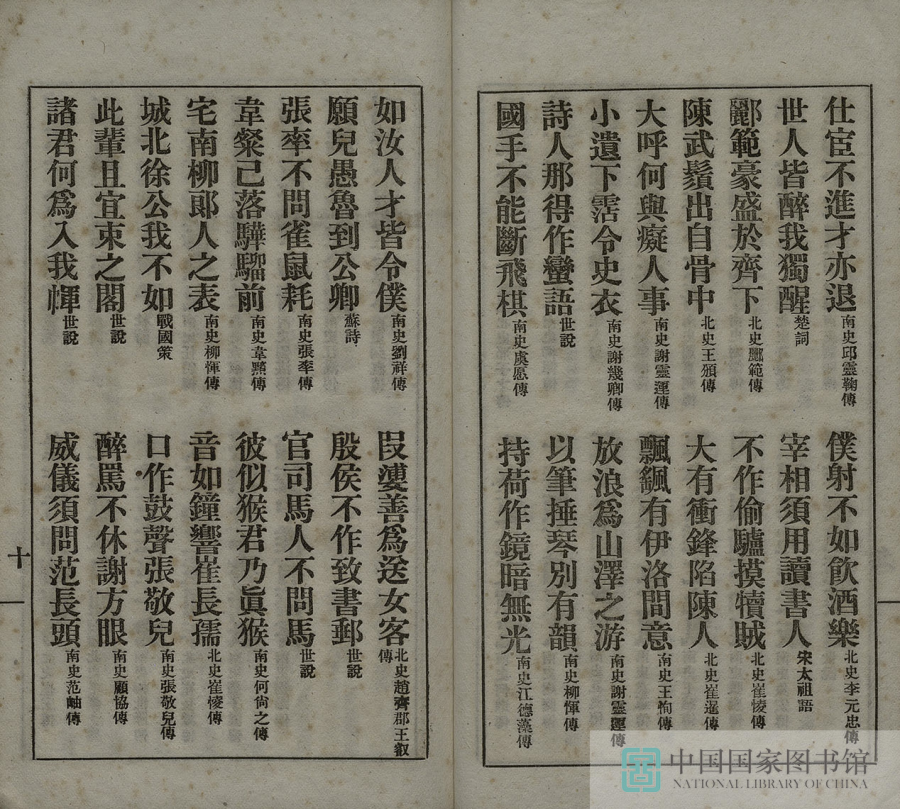 仕宦不進才亦退南史邱靈鞠傳
僕射不如飮酒樂北史李元忠傳
世人皆醉我獨醒楚詞
宰相須用讀書人宋太祖語
酈範豪盛於齊下北史酈範傳
不作偷驢摸犢賊北史崔㥄傳
陳武鬚出自骨中北史王頒傳
大有衝鋒陷陳人北史崔暹傳
大呼何與癡人事南史謝靈運傳
飄颻有伊洛間意南史王恂傳
小遺下霑令史衣南史謝幾卿傳
放浪爲山澤之游南史謝靈運傳
詩人那得作蠻語世說
以筆捶琴別有韻南史柳惲傳
國手不能斷飛棋南史虞愿傳
持荷作鏡暗無光南史江德藻傳
如汝人才皆令僕南史劉祥傳
叚婕善爲送女客北史趙齊郡王叡傳
願兒愚魯到公卿蘇詩
殷侯不作致書郵世說
張率不問雀鼠耗南史張率傳
官司馬人不問馬世說
韋粲已落驊騮前南史韋黯傳
彼似猴君乃眞猴南史何尙之傳
宅南柳郞人之表南史柳惲傳
音如鐘響崔長孺北史崔㥄傳
城北徐公我不如戰國策
口作鼓聲張敬兒南史張敬兒傳
此輩且宜束之閣世說
醉罵不休謝方眼南史顧協傳
諸君何爲入我㡓世說
威儀須問范長頭南史范岫傳
十
中国国家图书馆
NATIONAL LIBRARY OF CHINA